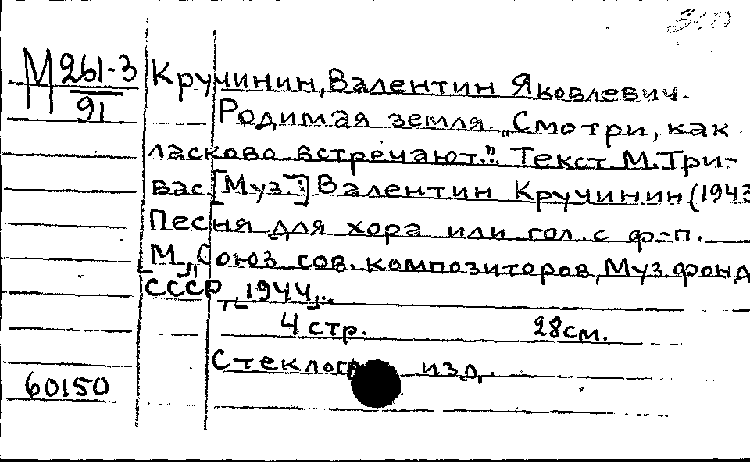 М 261-3
91
Кручинин, Валентин Яковлевич.
Родимая земля „Смотри, как
ласково встречают." Текст М. Три-
вас. [Муз.:] Валентин Кручинин (1943
Песня для хора или гол. с ф-п.
М., Союз сов. композиторов, Муз. фонд
СССР, 1944.
4 стр. 28 см.
изд.
60150